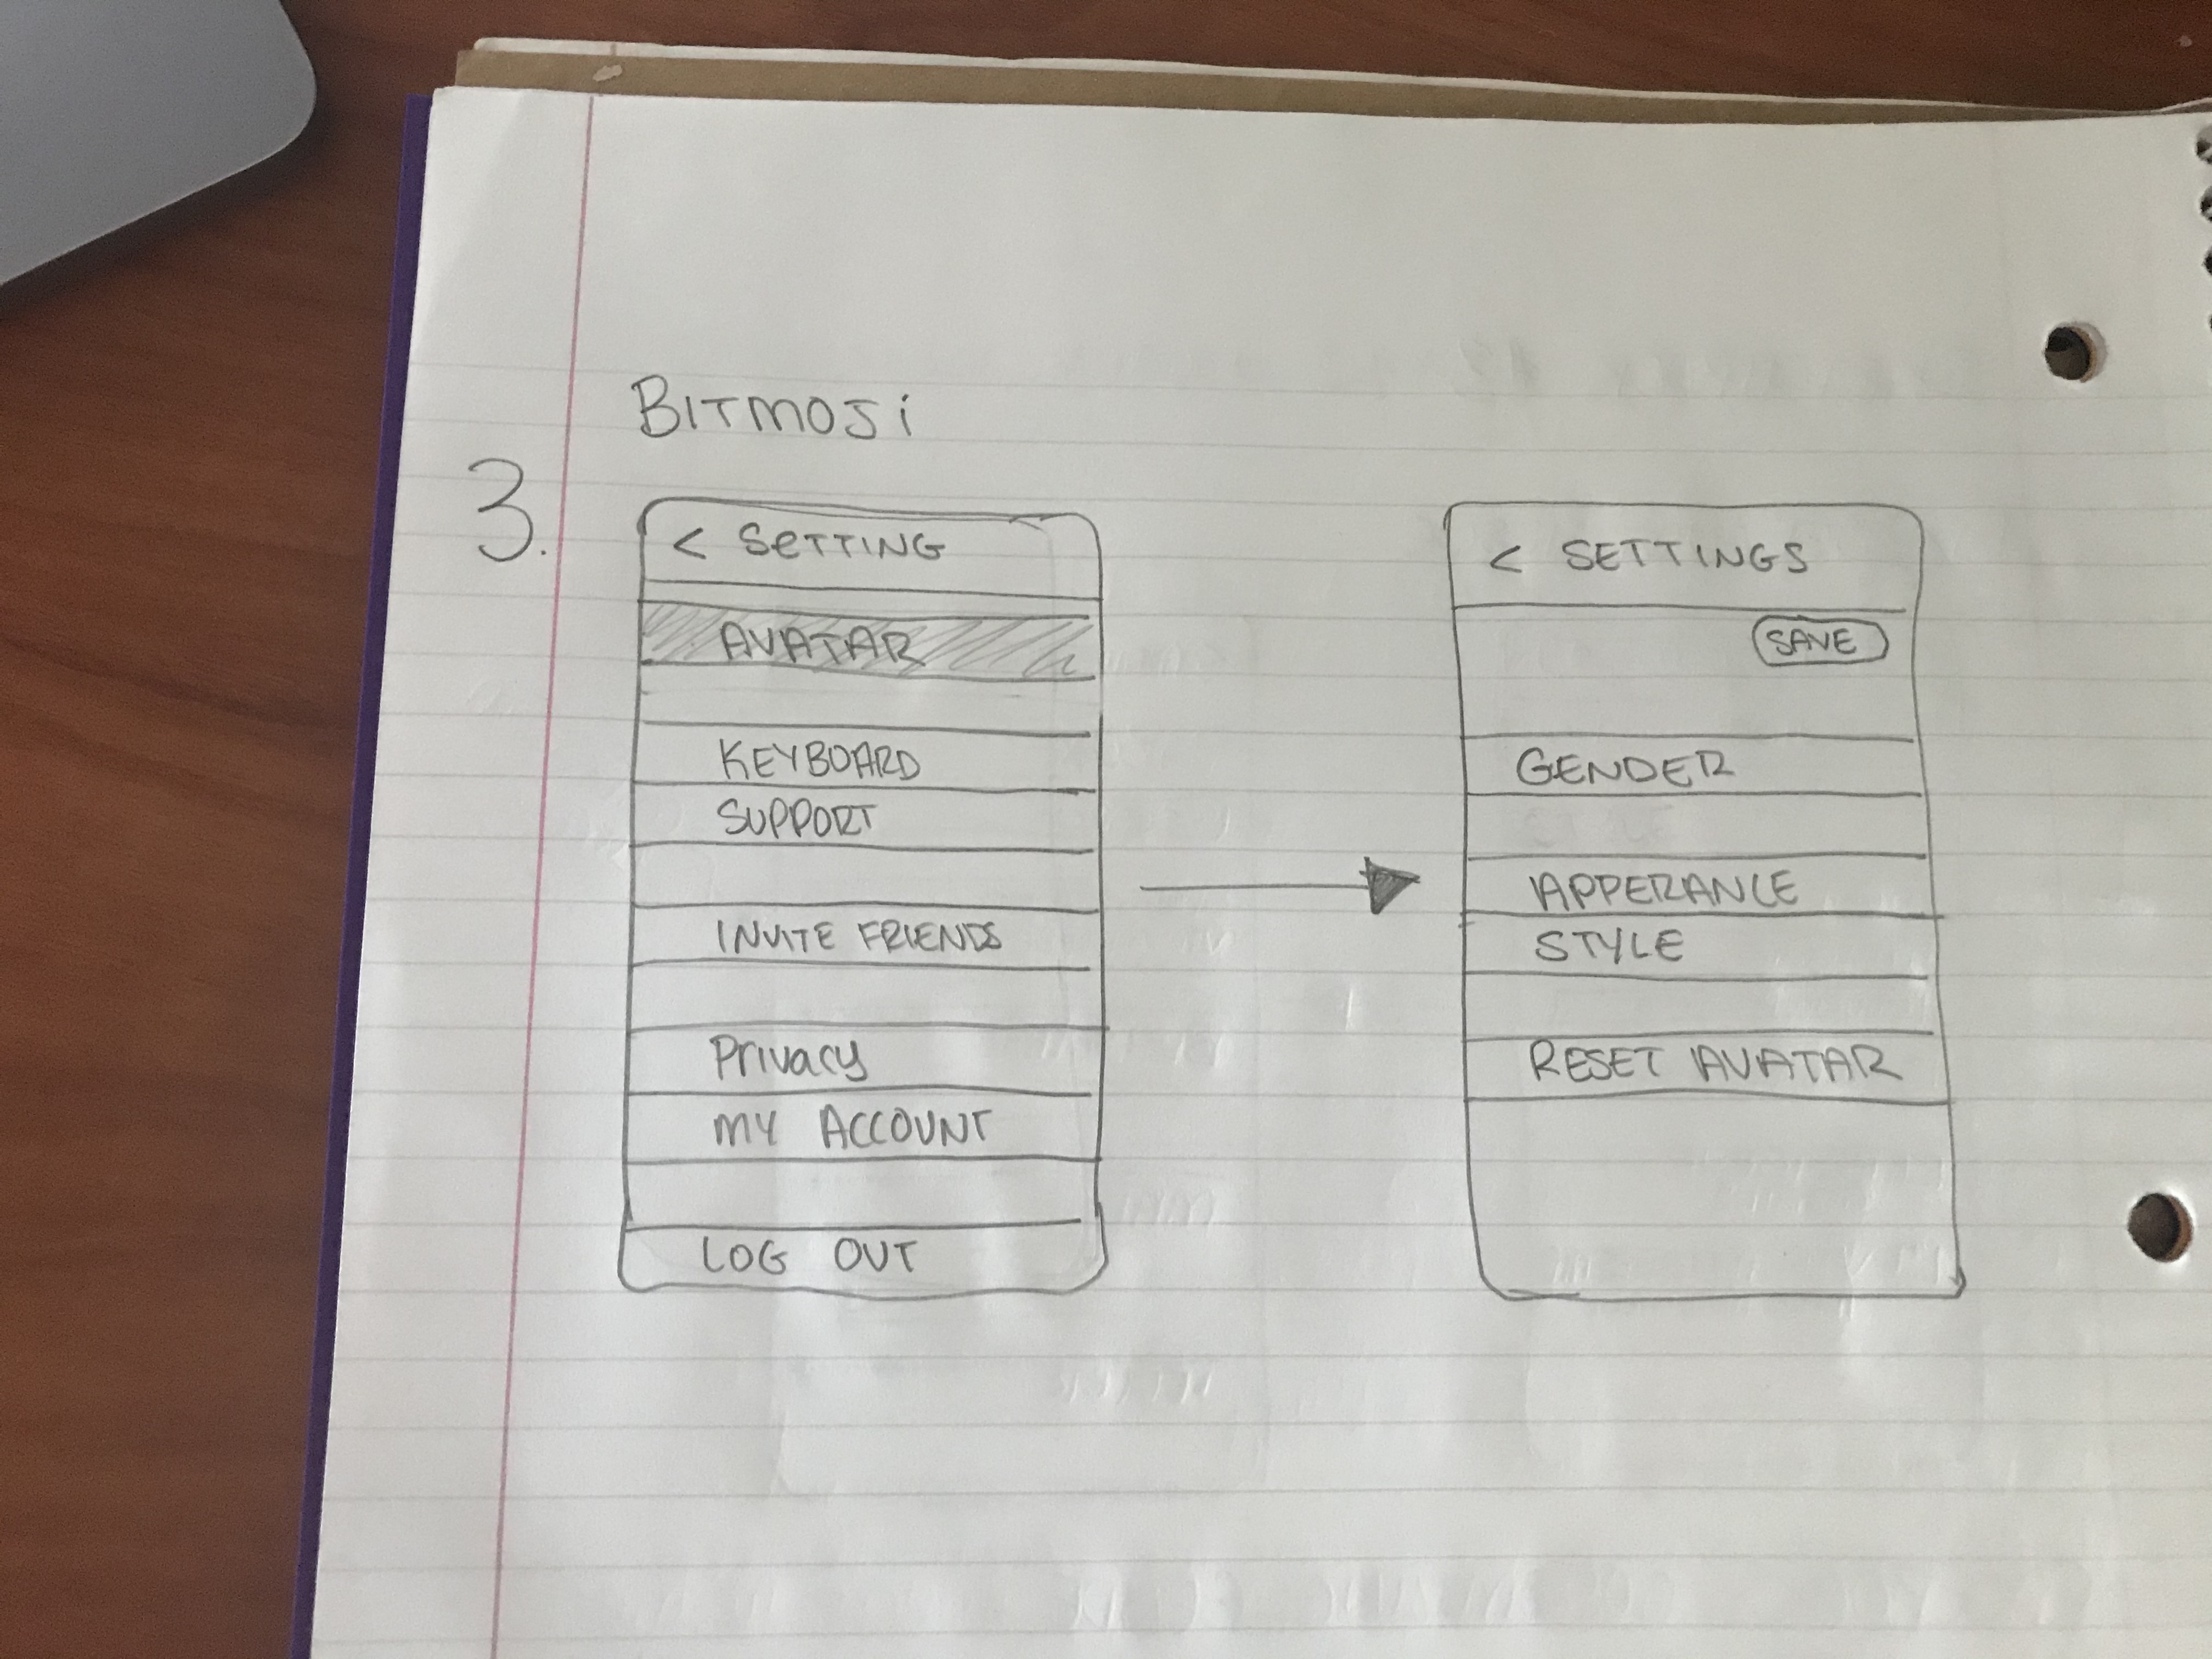 3.
BITMOJi
< SETTING
AVATAR
KEYBOARD
SUPPORT
INVITE FRIENDS
Privacy
MY ACCOUNT
LOG OUT
< SETTINGS
SAVE
GENDER
APPERANCE
STYLE
RESET AVATAR